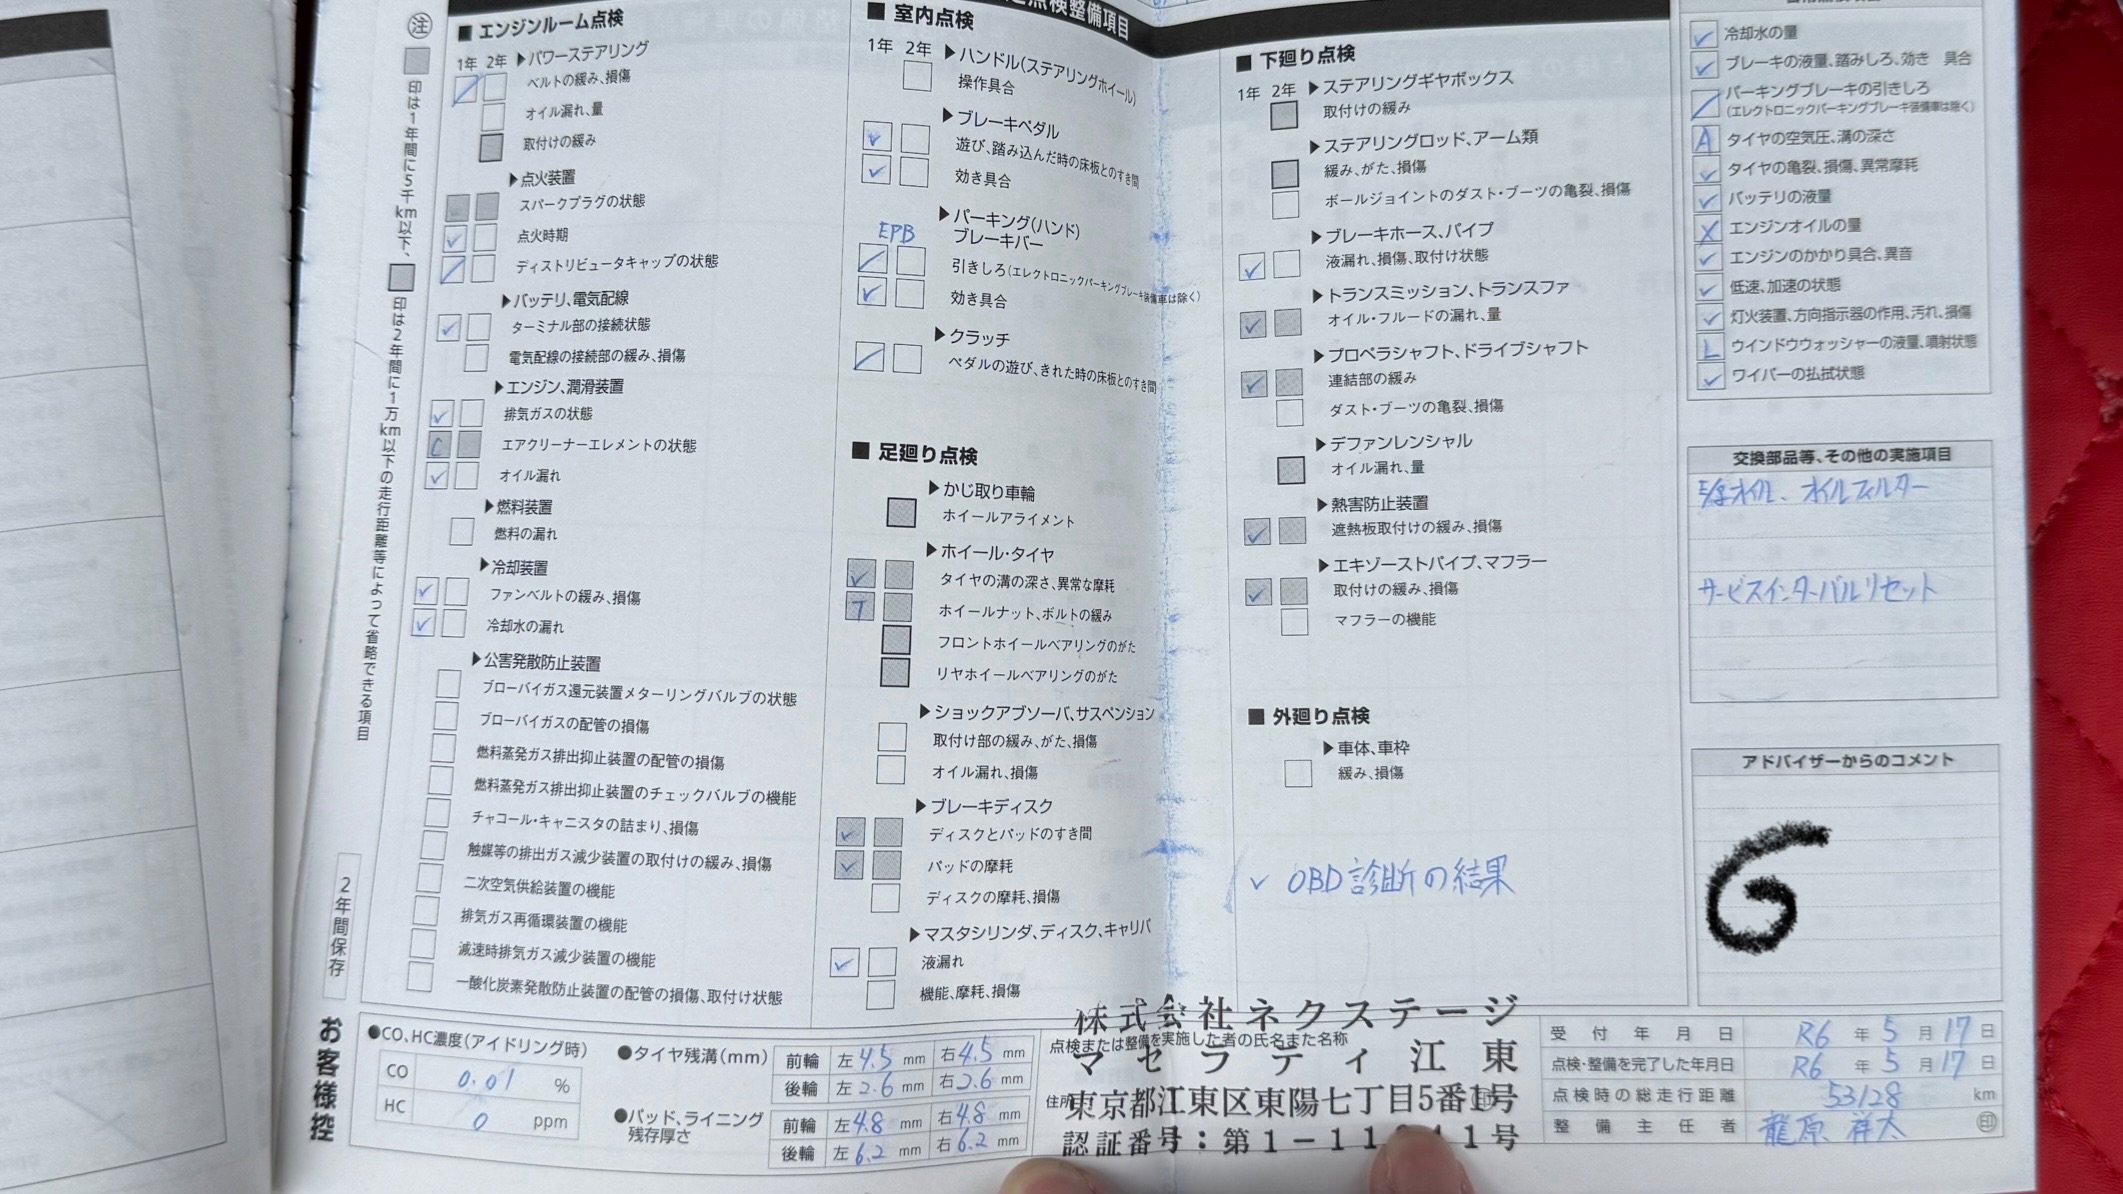 定点検整備項目
注
印は1年間に5千km以下、
印は2年間に1万km以下の走行距離等によって省略できる項目
2年間保存
お客様控
■ エンジンルーム点検
1年 2年 ▶パワーステアリング
ベルトの緩み、損傷
オイル漏れ、量
取付けの緩み
▶点火装置
スパークプラグの状態
✓ 点火時期
ディストリビュータキャップの状態
▶バッテリ、電気配線
✓ ターミナル部の接続状態
電気配線の接続部の緩み、損傷
▶エンジン、潤滑装置
✓ 排気ガスの状態
C エアクリーナーエレメントの状態
✓ オイル漏れ
▶燃料装置
燃料の漏れ
▶冷却装置
✓ ファンベルトの緩み、損傷
✓ 冷却水の漏れ
▶公害発散防止装置
ブローバイガス還元装置メターリングバルブの状態
ブローバイガスの配管の損傷
燃料蒸発ガス排出抑止装置の配管の損傷
燃料蒸発ガス排出抑止装置のチェックバルブの機能
チャコール・キャニスタの詰まり、損傷
触媒等の排出ガス減少装置の取付けの緩み、損傷
二次空気供給装置の機能
排気ガス再循環装置の機能
減速時排気ガス減少装置の機能
一酸化炭素発散防止装置の配管の損傷、取付け状態
■ 室内点検
1年 2年 ▶ハンドル(ステアリングホイール)
操作具合
▶ブレーキペダル
✓ 遊び、踏み込んだ時の床板とのすき間
✓ 効き具合
▶パーキング(ハンド)
EPB ブレーキバー
引きしろ(エレクトロニックパーキングブレーキ装備車は除く)
✓ 効き具合
▶クラッチ
ペダルの遊び、きれた時の床板とのすき間
■ 足廻り点検
▶かじ取り車輪
ホイールアライメント
▶ホイール・タイヤ
✓ タイヤの溝の深さ、異常な摩耗
T ホイールナット、ボルトの緩み
フロントホイールベアリングのがた
リヤホイールベアリングのがた
▶ショックアブソーバ、サスペンション
取付け部の緩み、がた、損傷
オイル漏れ、損傷
▶ブレーキディスク
✓ ディスクとパッドのすき間
✓ パッドの摩耗
ディスクの摩耗、損傷
▶マスタシリンダ、ディスク、キャリパ
✓ 液漏れ
機能、摩耗、損傷
■ 下廻り点検
1年 2年 ▶ステアリングギヤボックス
取付けの緩み
▶ステアリングロッド、アーム類
緩み、がた、損傷
ボールジョイントのダスト・ブーツの亀裂、損傷
▶ブレーキホース、パイプ
✓ 液漏れ、損傷、取付け状態
▶トランスミッション、トランスファ
✓ オイル・フルードの漏れ、量
▶プロペラシャフト、ドライブシャフト
✓ 連結部の緩み
ダスト・ブーツの亀裂、損傷
▶デファンレンシャル
オイル漏れ、量
▶熱害防止装置
✓ 遮熱板取付けの緩み、損傷
▶エキゾーストパイプ、マフラー
✓ 取付けの緩み、損傷
マフラーの機能
■ 外廻り点検
▶車体、車枠
緩み、損傷
✓ OBD診断の結果
✓ 冷却水の量
✓ ブレーキの液量、踏みしろ、効き 具合
パーキングブレーキの引きしろ
(エレクトロニックパーキングブレーキ装備車は除く)
A タイヤの空気圧、溝の深さ
✓ タイヤの亀裂、損傷、異常摩耗
✓ バッテリの液量
X エンジンオイルの量
✓ エンジンのかかり具合、異音
✓ 低速、加速の状態
✓ 灯火装置、方向指示器の作用、汚れ、損傷
L ウインドウウォッシャーの液量、噴射状態
✓ ワイパーの払拭状態
交換部品等、その他の実施項目
オイル、オイルフィルター
サービスインターバルリセット
アドバイザーからのコメント
6
●CO、HC濃度(アイドリング時)
CO 0.01 %
HC 0 ppm
●タイヤ残溝(mm)
前輪 左4.5 mm 右4.5 mm
後輪 左2.6 mm 右2.6 mm
●パッド、ライニング
残存厚さ
前輪 左4.8 mm 右4.8 mm
後輪 左6.2 mm 右6.2 mm
株式会社ネクステージ
点検または整備を実施した者の氏名また名称
マセラティ江東
住所 東京都江東区東陽七丁目5番1号
認証番号:第1-11
受付年月日 R6 年 5 月 17 日
点検・整備を完了した年月日 R6 年 5 月 17 日
点検時の総走行距離 53128 km
整備主任者 龍原 祥太 印